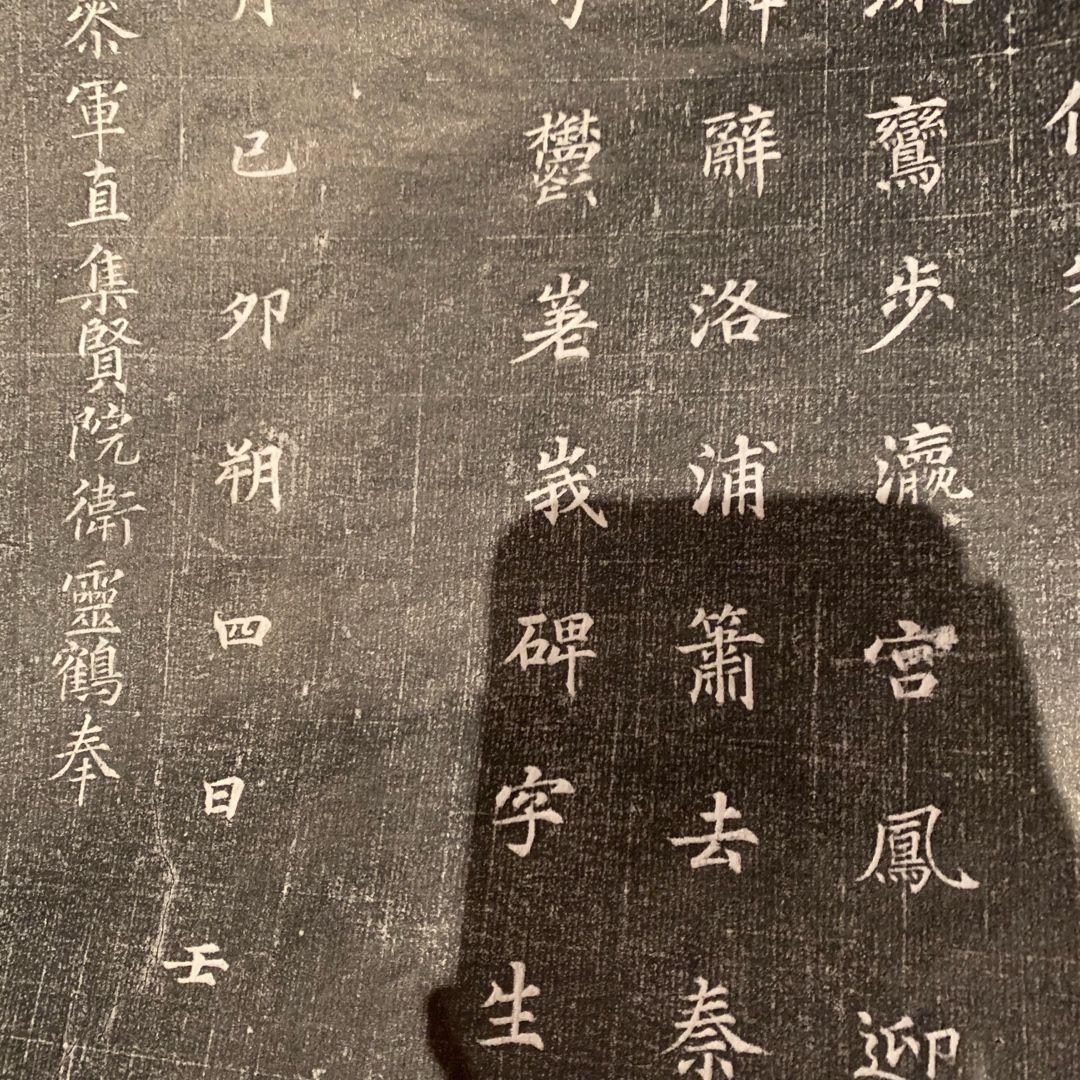 鸞步瀛宮鳳迎
辭洛浦簫去秦
鬱嵳峩碑字生
己卯朔四日壬
叅軍直集賢院衛靈鶴奉